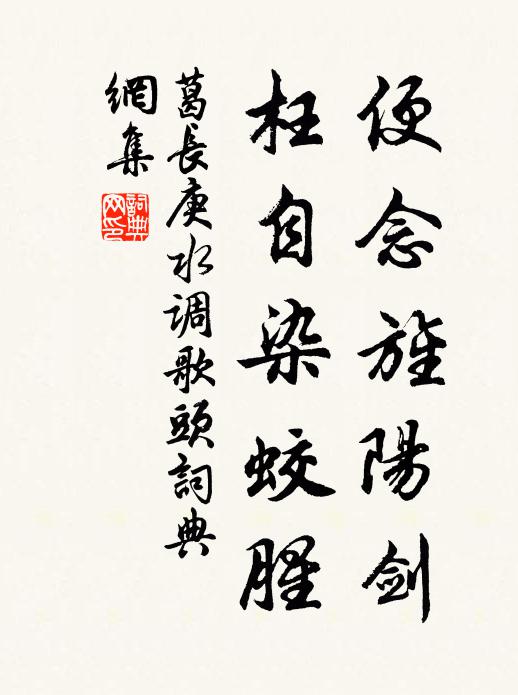 便念旌陽劍
枉自染蛟腥
葛長庚水調歌頭詞典
網集
詞典
网印